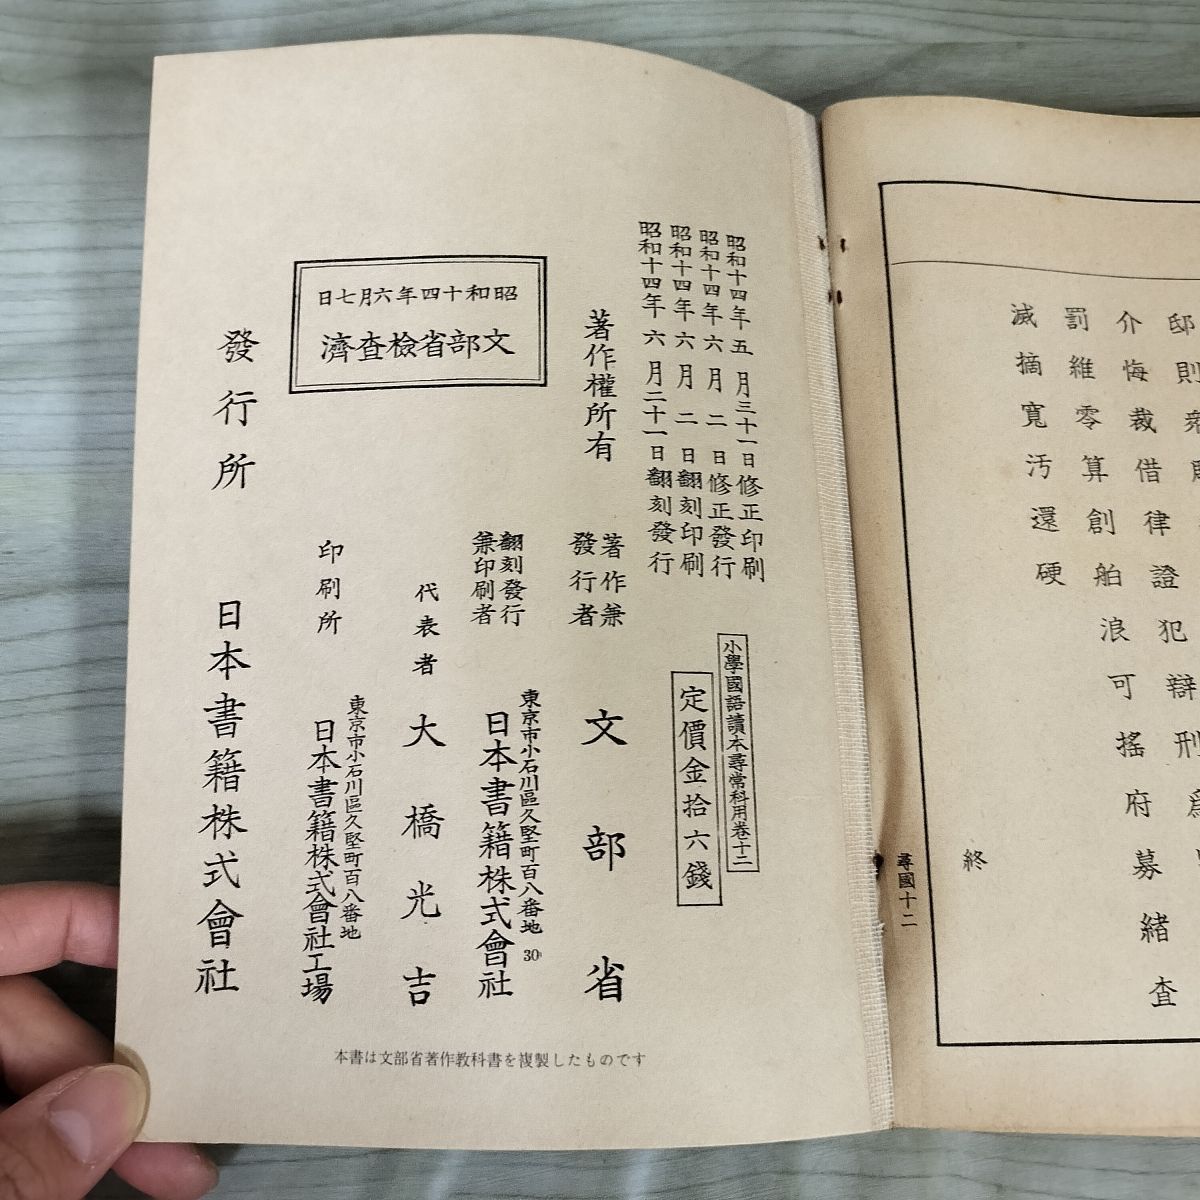 邸則
介悔裁借律證犯辯刑爲
罰維零算創舶浪可搖府募緒査
滅摘寬汚還硬
終
尋國十二
昭和十四年五月三十一日修正印刷
昭和十四年六月二日修正發行
昭和十四年六月二日翻刻印刷
昭和十四年六月二十一日翻刻發行
小學國語讀本尋常科用卷十二
定價金拾六錢
著作權所有
著作兼
發行者
文部省
翻刻發行
兼印刷者
東京市小石川區久堅町百八番地
30
日本書籍株式會社
代表者 大橋光吉
印刷所
東京市小石川區久堅町百八番地
日本書籍株式會社工場
昭和十四年六月七日
文部省檢査濟
發行所 日本書籍株式會社
本書は文部省著作教科書を複製したものです